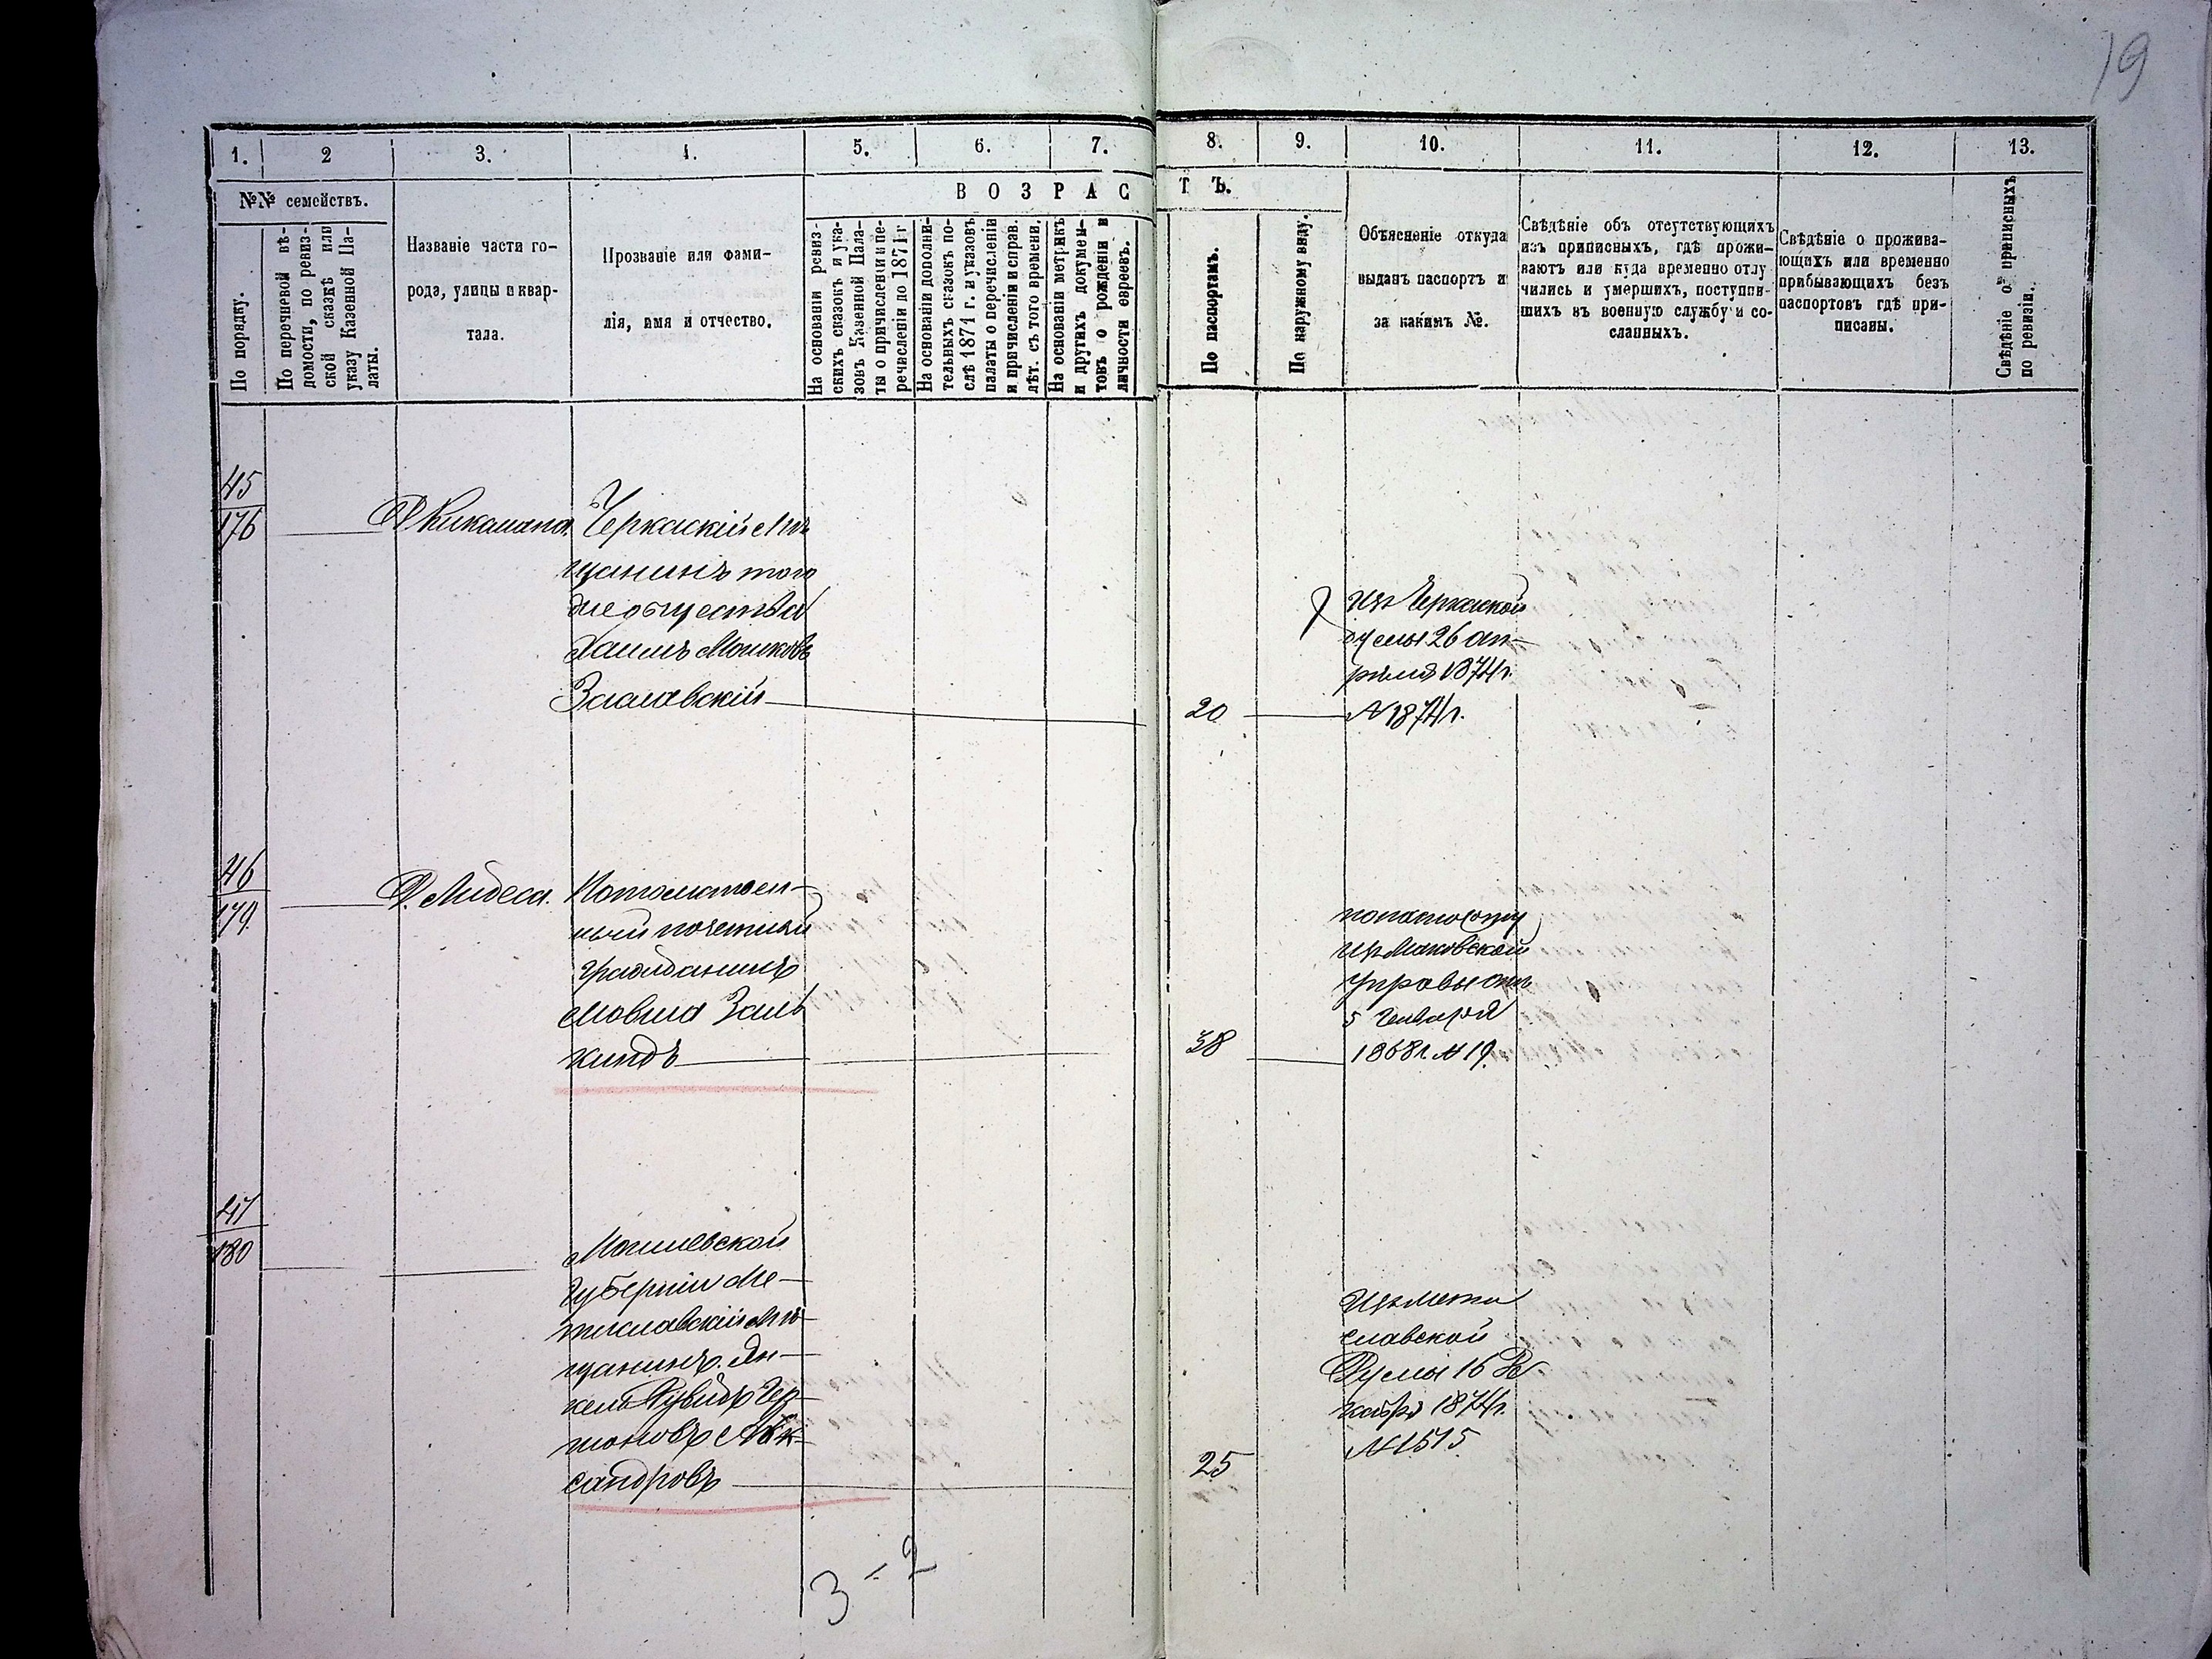 19
1. 2 3. 4. 5. 6. 7. 8. 9. 10. 11. 12. 13.
№№ семействъ.
В О З Р А С Т Ъ.
По порядку.
По перечневой вѣ-
домости, по ревиз-
ской сказкѣ или
указу Казенной Па-
латы.
Названіе части го-
рода, улицы и квар-
тала.
Прозваніе или фами-
лія, имя и отчество.
На основаніи ревиз-
скихъ сказокъ и ука-
зовъ Казенной Пала-
ты о причисленіи и пе-
речисленіи до 1871 г
На основаніи дополни-
тельныхъ сказокъ по-
слѣ 1871 г. и указовъ
палаты о перечисленіи
и причисленіи и справ.
лѣт. съ того времени.
На основаніи метрикъ
и другихъ докумен-
товъ о рожденіи и
личности евреевъ.
По паспортамъ.
По наружному виду.
Объясненіе откуда
выданъ паспортъ и
за какимъ №.
Свѣдѣніе объ отсутствующихъ
изъ приписныхъ, гдѣ прожи-
ваютъ или куда временно отлу
чились и умершихъ, поступив-
шихъ въ военную службу и со-
сланныхъ.
Свѣдѣніе о прожива-
ющихъ или временно
прибывающихъ безъ
паспортовъ гдѣ при-
писаны.
Свѣдѣніе о приписныхъ
по ревизіи.
45
176
Черкаскій мѣ
щанинъ того
же общества
Хаимъ Мошковъ
Заславскій
20
Изъ Черкаской
думы 26 ап-
рѣля 1874г.
N 1874г.
46
179
Д. Лидеса.
Потомствен-
ный почетный
гражданинъ
Мовша Заль
киндъ
38
по паспорту
управы отъ
5 Января
1868г. N 19.
47
180
Могилевской
Губерніи Мс-
тиславскій мѣ-
щанинъ Ян-
кель
шоновъ Алек-
сандровъ
25
Изъ Мсти
славской
Думы 16 Де
кабря 1874г.
N 1515.
3 - 2